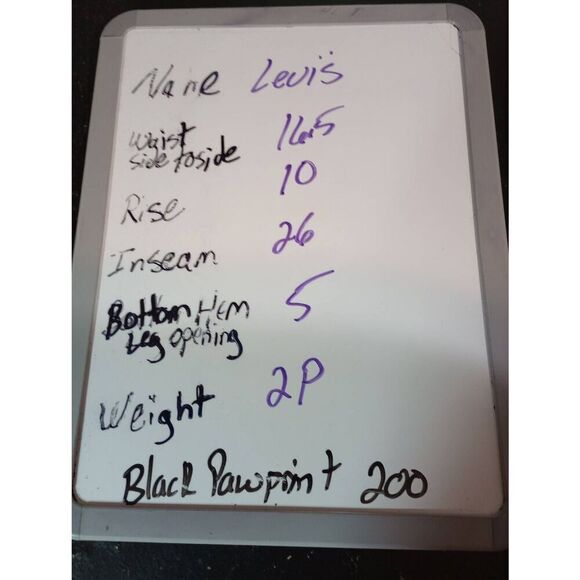 Name Levi's
Waist 16.5
side to side
Rise 10
Inseam 26
Bottom Hem 5
Leg opening
Weight 2P
Black Pawprint 200